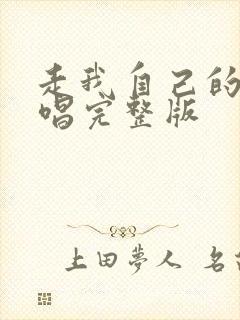 走我自己的
唱完整版
上田夢人 名